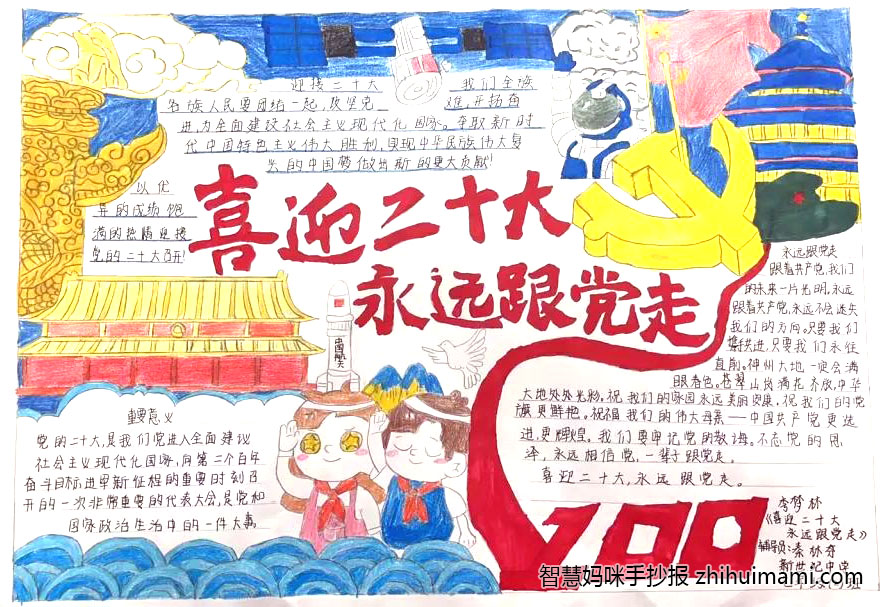 迎接二十大 我们全族
各族人民要团结一起,攻坚克 难,开拓奋
进,为全面建设社会主义现代化国家。夺取新时
代中国特色主义伟大胜利,实现中华民族伟大复
兴的中国梦做出新的更大贡献!
以优
异的成绩饱
满的热情迎接
党的二十大召开!
喜迎二十大
永远跟党走
中国航天
重要意义
党的二十大,是我们党进入全面建设
社会主义现代化国家,向第二个百年
奋斗目标进军新征程的重要时刻召
开的一次非常重要的代表大会,是党和
国家政治生活中的一件大事
永远跟党走
跟着共产党,我们
的未来一片光明,永远
跟着共产党,永远不会迷失
我们的方向。只要我们
携手共进,只要我们永往
直前。神州大地一定会满
眼春色。苍翠山岗满花齐放,中华
大地处处光彩。祝我们的家园永远美丽安康,祝我们的党
旗更鲜艳。祝福我们的伟大母亲——中国共产党更选
进,更辉煌。我们要牢记党的教诲。不忘党的恩
泽,永远相信党,一辈子跟党走。
喜迎二十大,永远跟党走。
100
李梦林
《喜迎二十大
永远跟党走》
辅导员:秦林奇
新世纪中学
智慧妈咪手抄报 zhihuimami.com